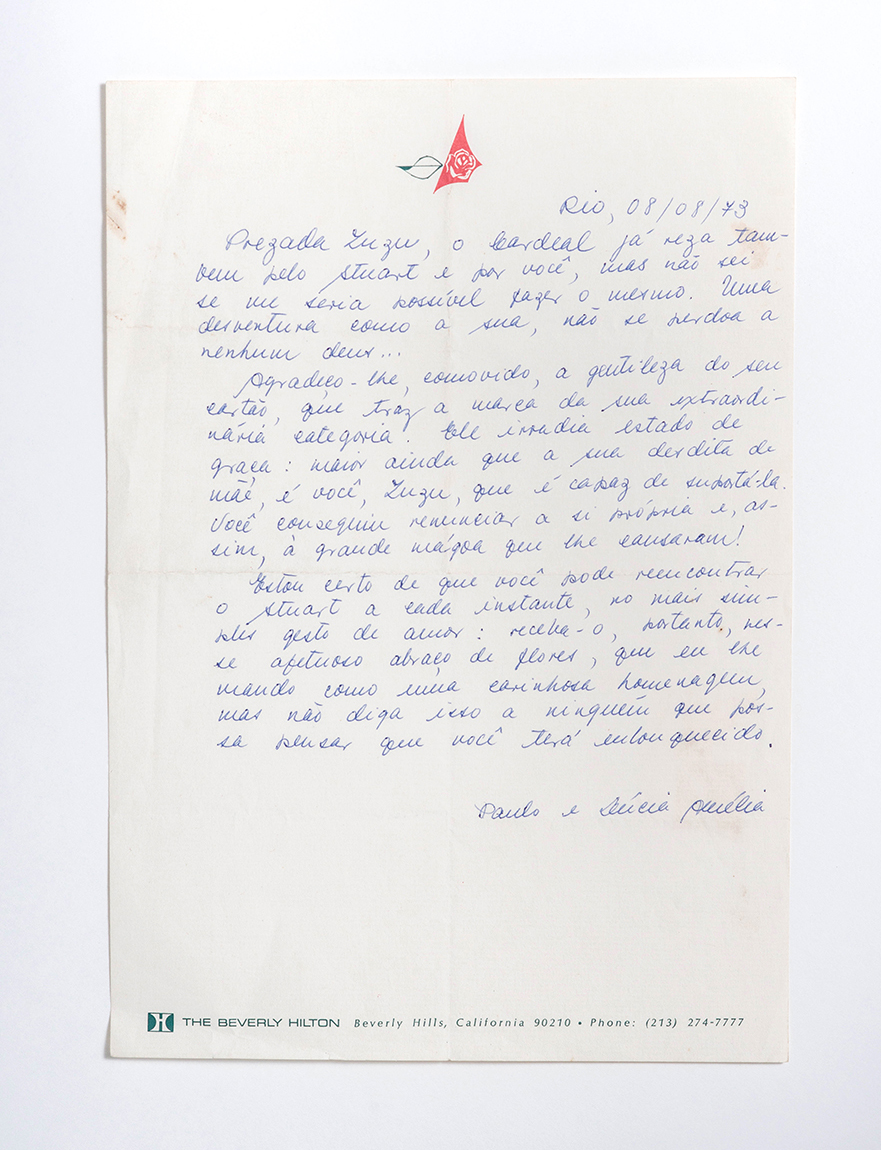 Rio, 08/08/73
Prezada Zuzu, o Cardeal já reza tam-
bem pelo Stuart e por você, mas não sei
se me seria possível fazer o mesmo. Uma
desventura como a sua, não se perdoa a
nenhum deus...
Agradeço-lhe, comovido, a gentileza do seu
cartão, que traz a marca da sua extraordi-
nária categoria. Ele irradia estado de
graça: maior ainda que a sua desdita de
mãe, é você, Zuzu, que é capaz de suportá-la.
Você conseguiu renunciar a si própria e, as-
sim, à grande mágoa que lhe causaram!
Estou certo de que você pode reencontrar
o Stuart a cada instante, no mais sim-
ples gesto de amor: receba-o, portanto, nes-
se afetuoso abraço de flores, que eu lhe
mando como uma carinhosa homenagem,
mas não diga isso a ninguém que pos-
sa pensar que você terá enlouquecido.
Paulo e Lúcia Amélia
THE BEVERLY HILTON Beverly Hills, California 90210 • Phone: (213) 274-7777